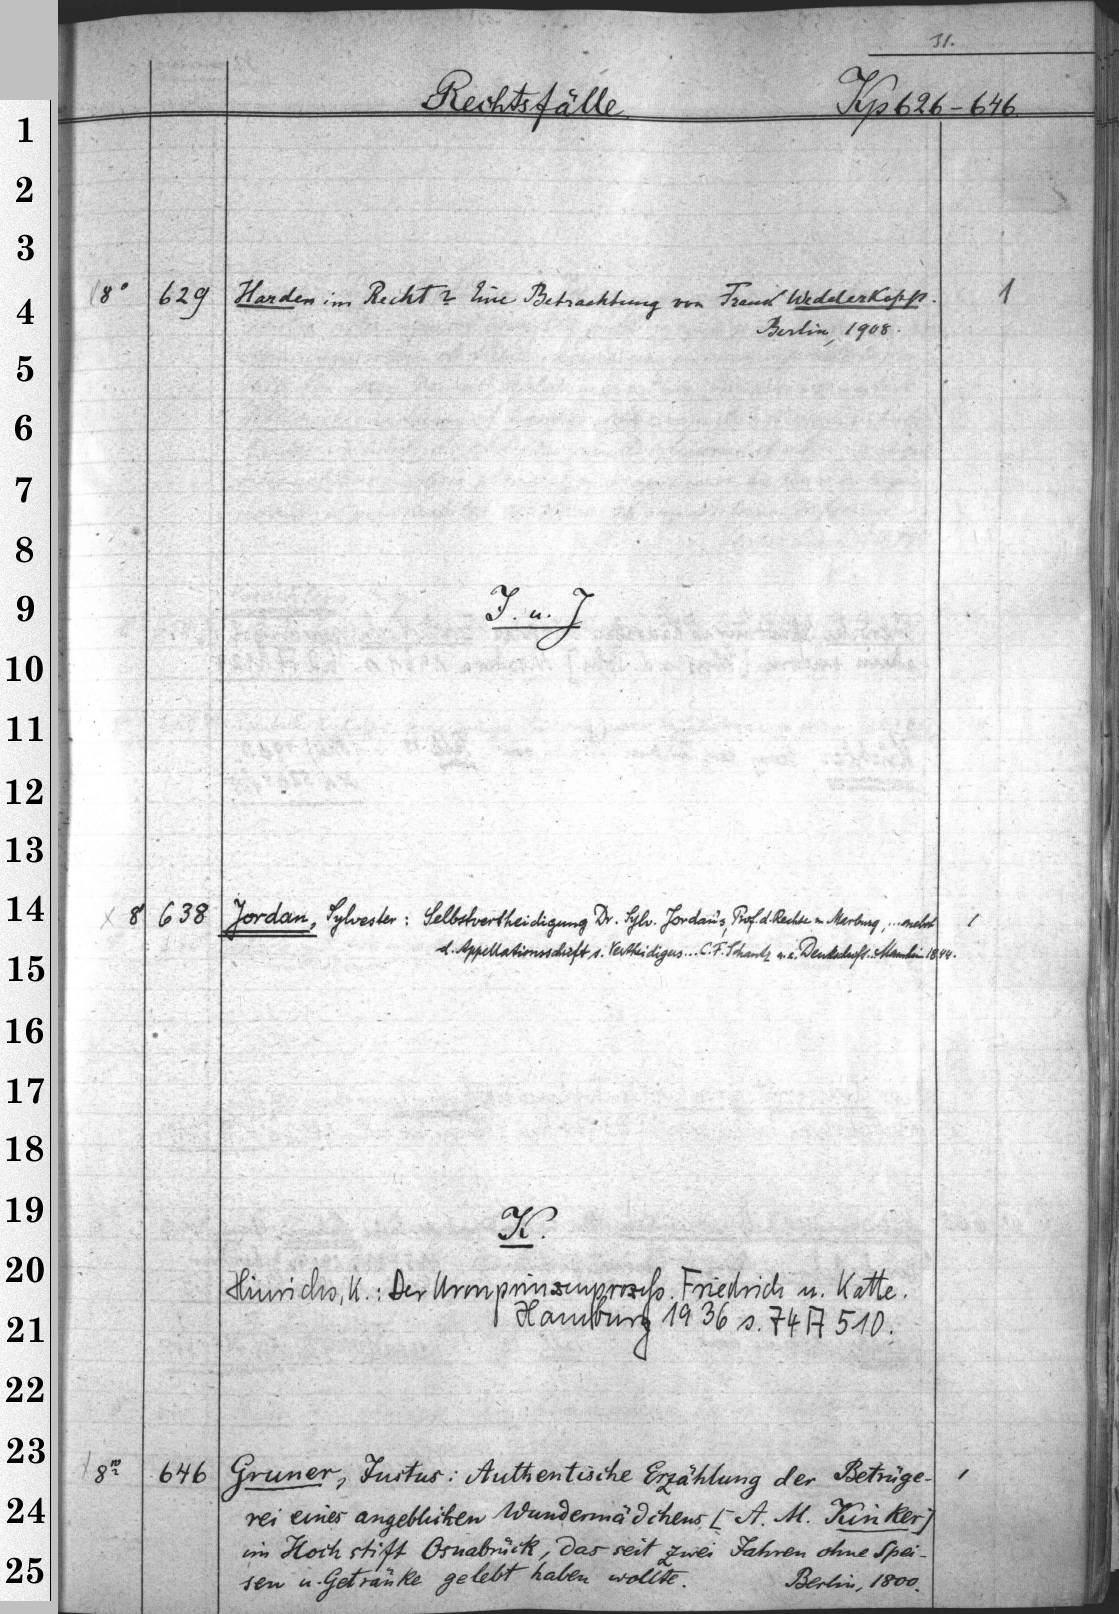 31.
Rechtsfälle Kp 626-646
1
2
3
8° 629 Harden im Recht? Eine Betrachtung von Frank Wedderkopp. 1
4
Berlin, 1908.
5
6
7
8
9 I. u. J
10
11
12
13
14 x 8 638 Jordan, Sylvester: Selbstvertheidigung Dr. Sylv. Jordan's, Prof. d. Rechte in Marburg, ... nebst 1
15 d. Appellationsschrift s. Vertheidigers... C. F. Schantz u. e. Denkschrift. Mannheim 1844.
16
17
18
19 K.
20 Hinrichs, K.: Der Kronprinzenprozess. Friedrich u. Katte.
21 Hamburg 1936 s. 74 A 510.
22
23 8° 646 Gruner, Justus: Authentische Erzählung der Betrüge-
24 rei eines angeblichen Wundermädchens [A. M. Kinker]
im Hochstift Osnabrück, das seit zwei Jahren ohne Spei-
25 sen u. Getränke gelebt haben wollte. Berlin, 1800.